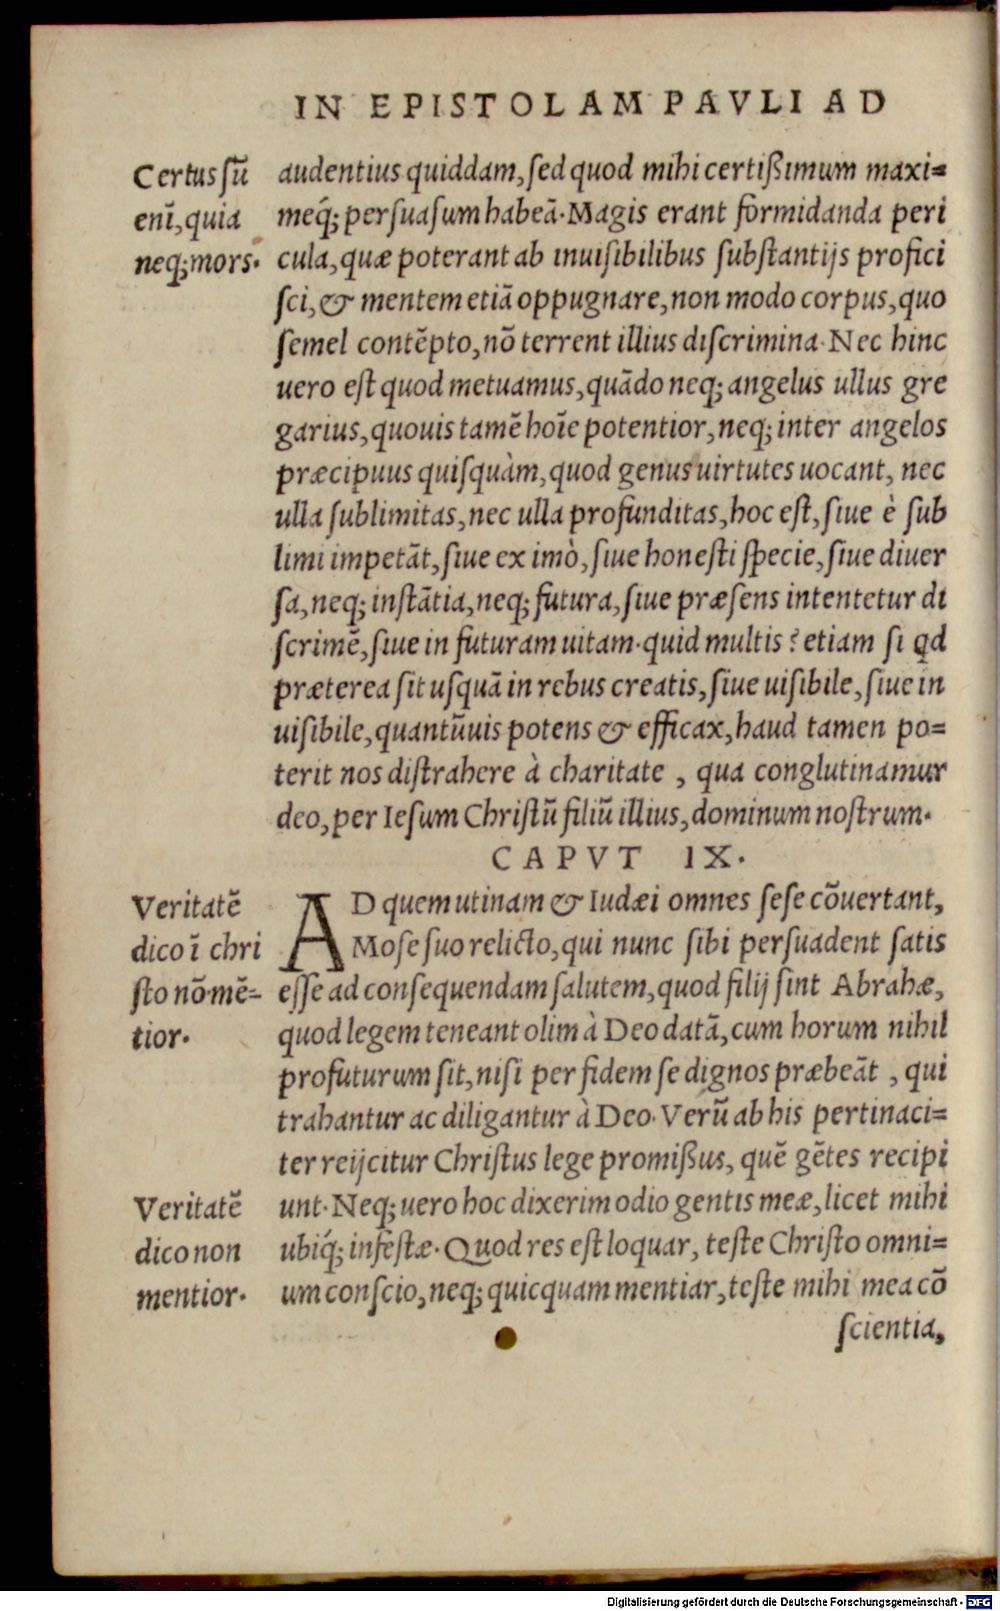 IN EPISTOLAM PAVLI AD
Certus sũ
enĩ, quia
neq; mors.
audentius quiddam, sed quod mihi certißimum maxi=
meq́; persuasum habeã. Magis erant formidanda peri
cula, quæ poterant ab inuisibilibus substantijs profici
sci, & mentem etiã oppugnare, non modo corpus, quo
semel contẽpto, nõ terrent illius discrimina. Nec hinc
uero est quod metuamus, quãdo neq; angelus ullus gre
garius, quouis tamẽ hoĩe potentior, neq; inter angelos
præcipuus quisquàm, quod genus uirtutes uocant, nec
ulla sublimitas, nec ulla profunditas, hoc est, siue è sub
limi impetãt, siue ex imò, siue honesti specie, siue diuer
sa, neq; instãtia, neq; futura, siue præsens intentetur di
scrimẽ, siue in futuram uitam. quid multis? etiam si qd
præterea sit usquã in rebus creatis, siue uisibile, siue in
uisibile, quantũuis potens & efficax, haud tamen po=
terit nos distrahere à charitate, qua conglutinamur
deo, per Iesum Christũ filiũ illius, dominum nostrum.
CAPVT IX.
Veritatẽ
dico ĩ chri
sto nõ mẽ=
tior.
AD quem utinam & Iudæi omnes sese cõuertant,
Mose suo relicto, qui nunc sibi persuadent satis
esse ad consequendam salutem, quod filij sint Abrahæ,
quod legem teneant olim à Deo datã, cum horum nihil
profuturum sit, nisi per fidem se dignos præbeãt, qui
trahantur ac diligantur à Deo. Verũ ab his pertinaci=
ter reijcitur Christus lege promißus, quẽ gẽtes recipi
Veritatẽ
dico non
mentior.
unt. Neq; uero hoc dixerim odio gentis meæ, licet mihi
ubiq́; infestæ. Quod res est loquar, teste Christo omni=
um conscio, neq; quicquam mentiar, teste mihi mea cõ
scientia,
Digitalisierung gefördert durch die Deutsche Forschungsgemeinschaft - DFG